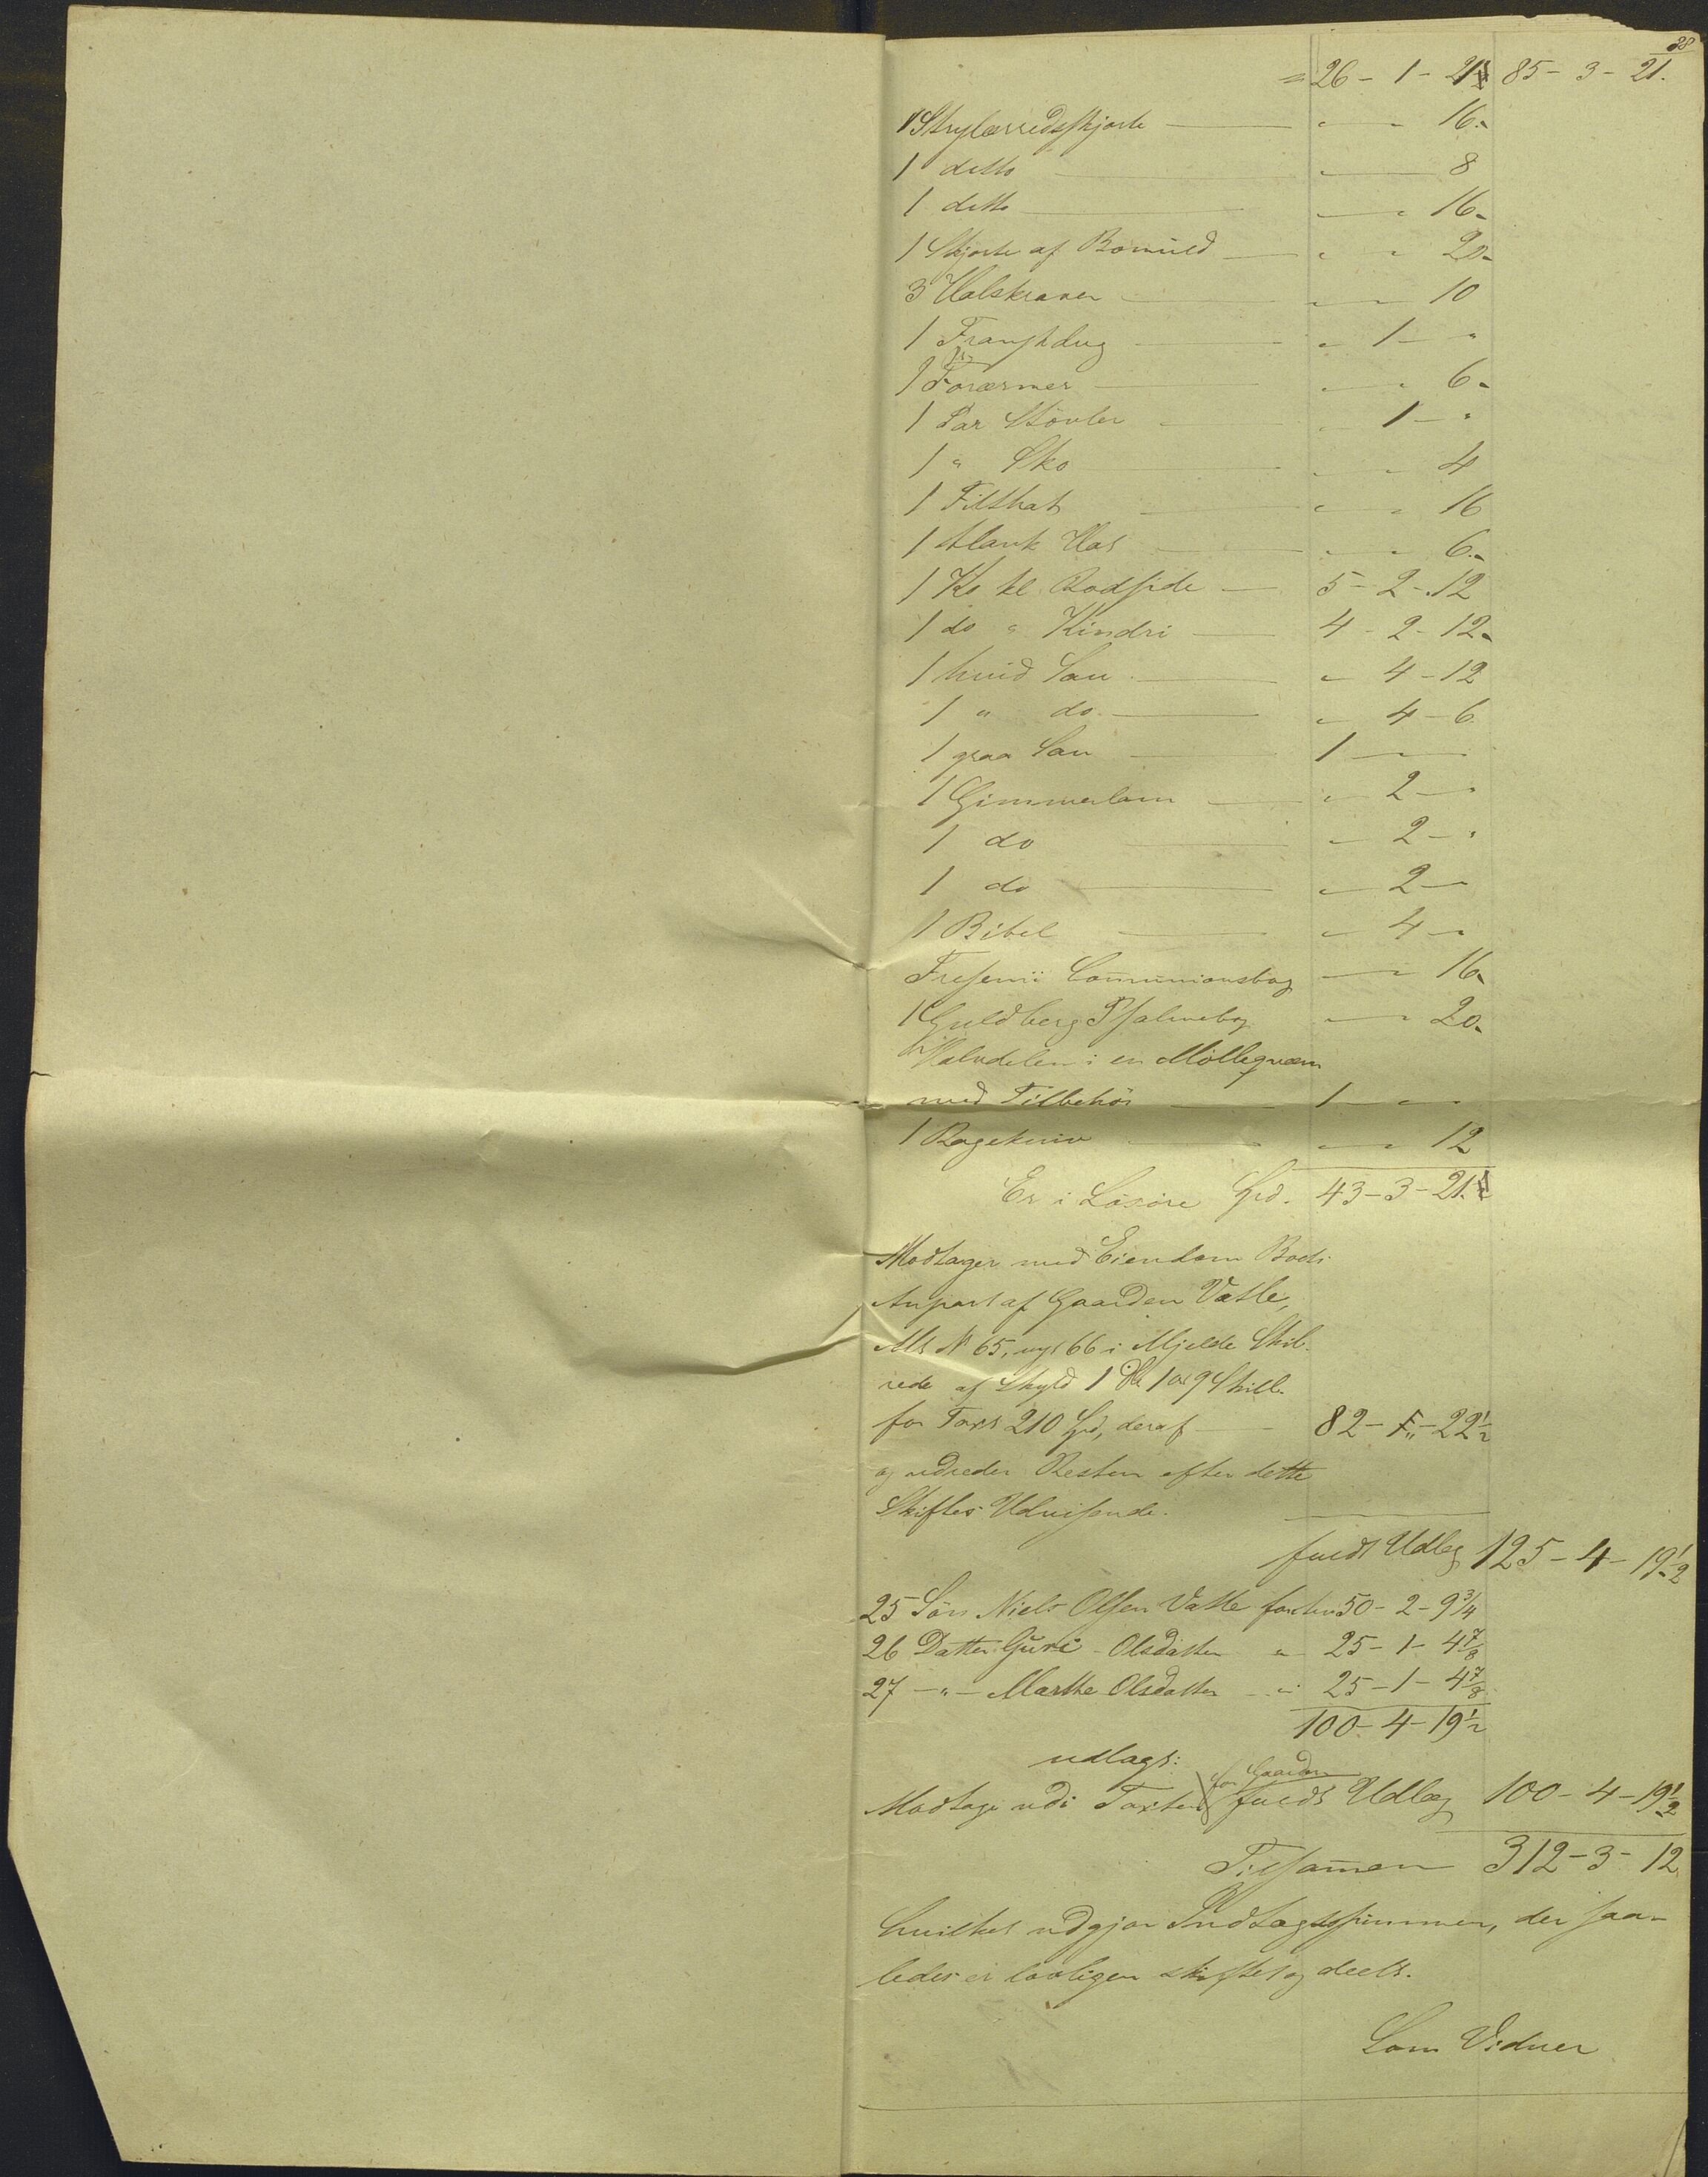 38
= 26 - 1 - 21½ 85 - 3 - 21.
1 Strylærredsskjorte — " — " 16 "
1 ditto — " — 8
1 ditto — " — " 16 "
1 Skjorte af Bomuld — " " 20 "
3 Halskraver — " — 10
1 — " 1 — "
1 Pr. Forærmer — " — " 6 "
1 Par Støvler — " 1 — "
1 " Sko — " " 4
1 Filthat — " — " 16
1 blank Hat — " " 6 "
1 Ko kl Rodside — 5 - 2 - 12
1 do " Kindri — 4 - 2 - 12 "
1 hvid Sau — " 4 - 12
1 " do. — " 4 - 6
1 graa Sau — 1 — " —
1 Gimmerlam — " 2 — "
1 do — " 2 — "
1 do — " 2 — "
1 Bibel — " 4 — "
Fresenii Com̅unionsbog — " 16 "
1 Guldberg Psalmebog — " 20 "
Halvdelen i en Møllegværn
med Tilbehør — 1 — " —
1 Ragekniv — " — " 12
Er i Løsøre Spd. 43 - 3 - 21½
Modtager med Eiendom Bods
Anpart af Gaarden Vatle,
M. N 65, nyt 66 i Mjelde Skib-
rede af Skyld 1 Dlr 1 ort 9 Skill.
for Taxt 210 Spd, deraf — 82 - " - 22½
og udreder Resten efter dette
Skiftes Udvisende.
fuldt Udlæg 125 - 4 - 19½
25 Søn Niels Olsen Vatle for hans 50 - 2 - 9¾
26 Datter Guri Olsdatter " 25 - 1 - 4⅞
27 — " — Marthe Olsdatter — " 25 - 1 - 4⅞
100 - 4 - 19½
udlagt:
Modtage udi Taxten for Gaarden fuldt Udlæg 100 - 4 - 19½
Tilsam̅en 312 - 3 - 12
hvilket udgjør Indtagtssummen, der saa-
ledes er lovligen skiftet og deelt.
Som Vidner